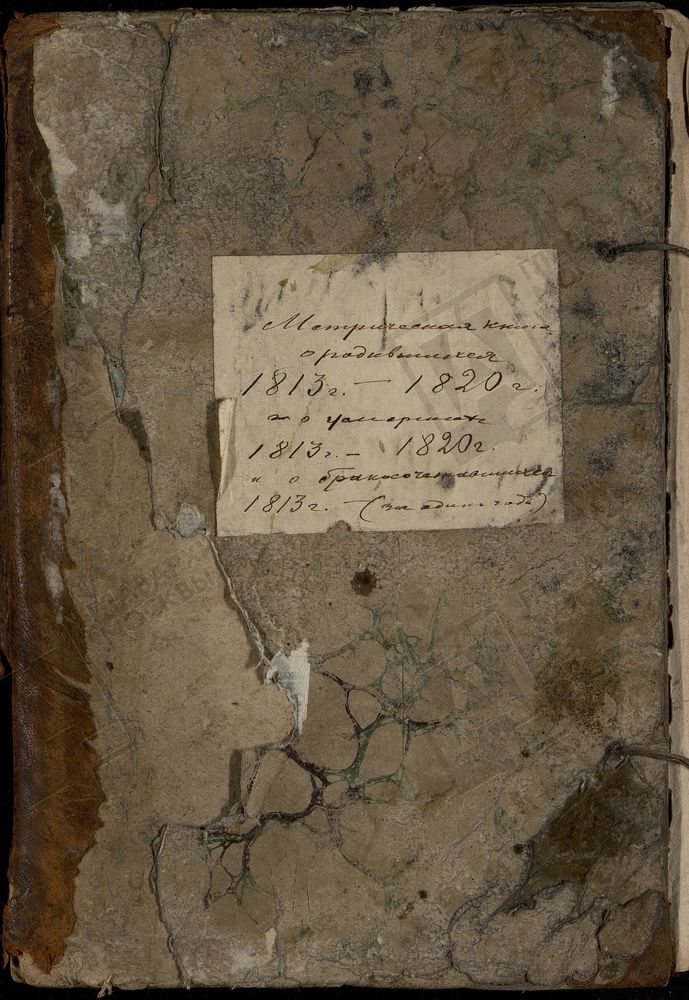 Метрическая книга
о родившихся
1813г. — 1820г.
и о умерших
1813г. — 1820г.
и о бракосочетавшихся
1813г. — (за один годъ)